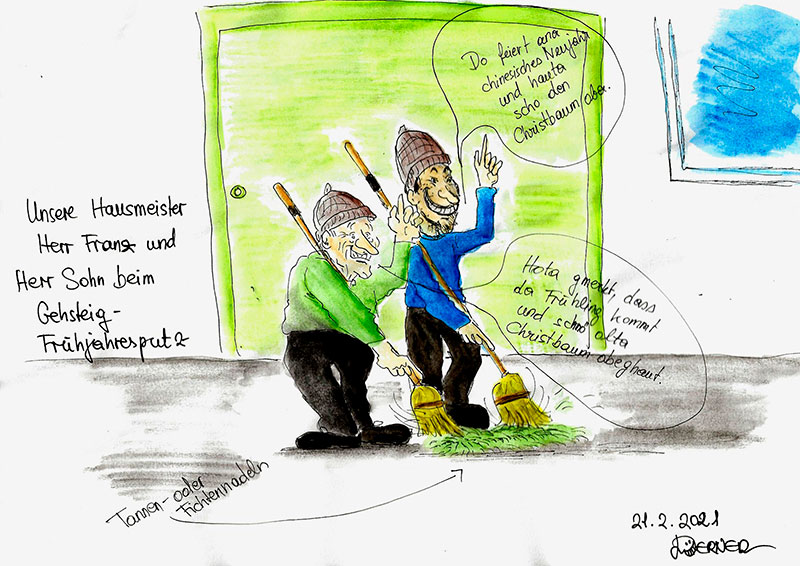 Do feiert ana
chinesisches Neujahr
und hauta
scho den
Christbaum aber.
Unsere Hausmeister
Herr Franz und
Herr Sohn beim
Gehsteig-
Frühjahresputz
Hota gmerkt, dass
da Frühling kommt
und scho ofta
Christbaum obeghaut.
Tannen- oder
Fichtennadeln
21.2.2021
BERNER